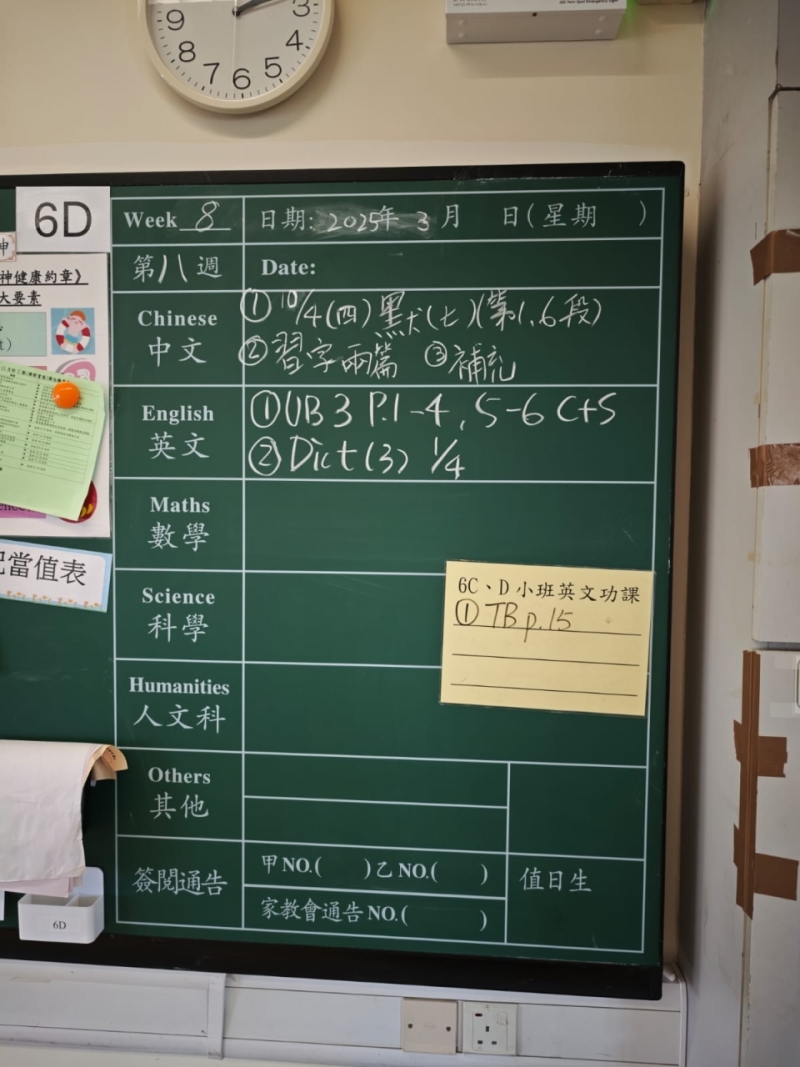 9 3
8 4
7 6 5
6D
Week 8 日期: 2025年 3月 日(星期 )
第八週 Date:
神健康約章》
大要素
Chinese
中文
① 10/4(四)默(七)(第1,6段)
② 習字兩篇 ③補充
English
英文
① UB 3 P.1-4, 5-6 C+S
② Dict (3) 1/4
Maths
數學
當值表
Science
科學
6C、D 小班英文功課
① TB p.15
Humanities
人文科
Others
其他
簽閱通告
甲NO.( )乙NO.( )
家教會通告NO.( )
值日生
6D